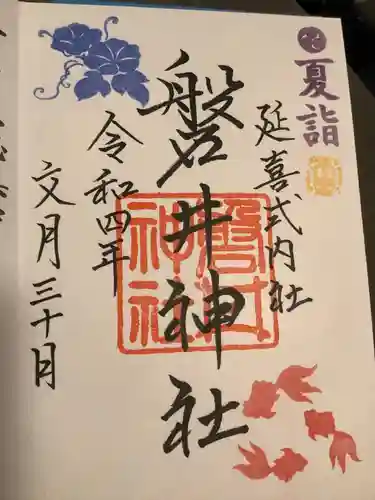 夏詣
延喜式内社
磐井神社
令和四年
文月三十日
磐井
神社